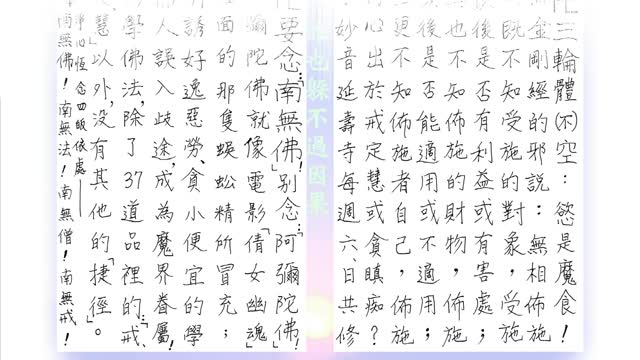 三輪體(不)空：慾是魔食！
金剛經的邪說：無相佈施
既不知受施的對象，受施
後是否有利益或有害處；
也不知佈施的財物，佈施
後是否能適用或不適用；
更不知佈施者自己，佈施
心出於戒定慧或貪瞋痴？
妙音延壽寺每週六、日共修
也躲不過因果
要念「南無佛」！別念「阿彌陀佛」！
彌陀佛就像電影「倩女幽魂」
面的那隻蜈蚣精所冒充；
誘好逸惡勞、貪小便宜的學
人誤入歧途，成為魔界眷屬！
學佛法，除了37道品裡的「戒、
慧」以外，沒有其他的「捷徑」。
心恆念四皈依處——
南無佛！南無法！南無僧！南無戒！